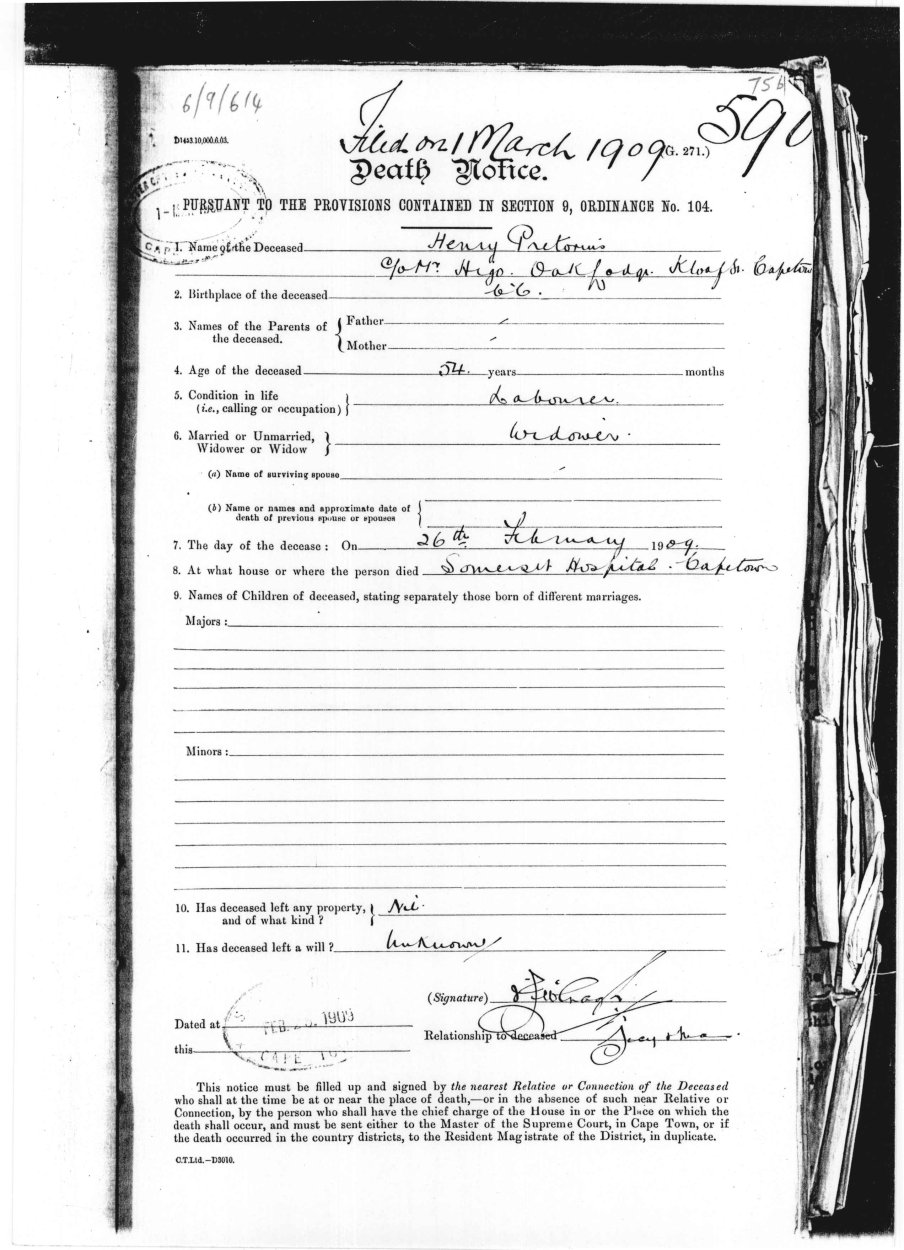 6/9/614
756
D1443.10,000.6.03.
Filed on 1 March 1909 (G. 271.)
590
Death Notice.
PURSUANT TO THE PROVISIONS CONTAINED IN SECTION 9, ORDINANCE No. 104.
1. Name of the Deceased Henry Pretorius
c/o Mr. Oak Lodge. Kloof St. Capetown
2. Birthplace of the deceased
3. Names of the Parents of the deceased. { Father
Mother
4. Age of the deceased 54. years months
5. Condition in life (i.e., calling or occupation) } Labourer.
6. Married or Unmarried, Widower or Widow } Widower.
(a) Name of surviving spouse
(b) Name or names and approximate date of death of previous spouse or spouses {
7. The day of the decease: On 26th February 1909.
8. At what house or where the person died Somerset Hospital. Capetown
9. Names of Children of deceased, stating separately those born of different marriages.
Majors :
Minors :
10. Has deceased left any property, and of what kind ? } Nil.
11. Has deceased left a will ? Unknown
(Signature)
Dated at FEB. 1909
Relationship to deceased
this CAPE
This notice must be filled up and signed by the nearest Relative or Connection of the Deceased
who shall at the time be at or near the place of death,—or in the absence of such near Relative or
Connection, by the person who shall have the chief charge of the House in or the Place on which the
death shall occur, and must be sent either to the Master of the Supreme Court, in Cape Town, or if
the death occurred in the country districts, to the Resident Magistrate of the District, in duplicate.
C.T.Ltd.—D3010.